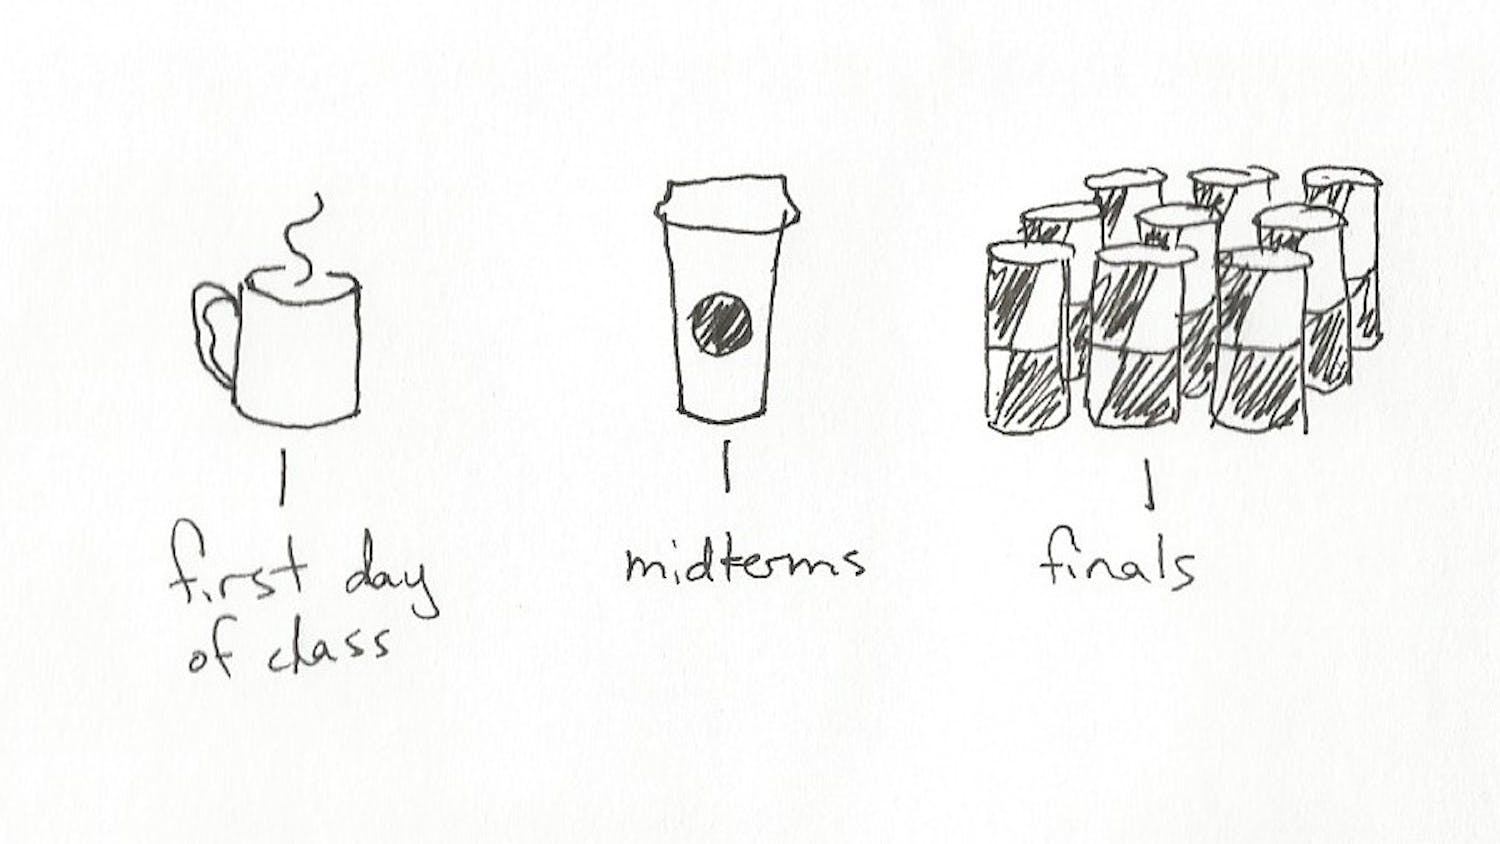 first day
of class
midterms
finals